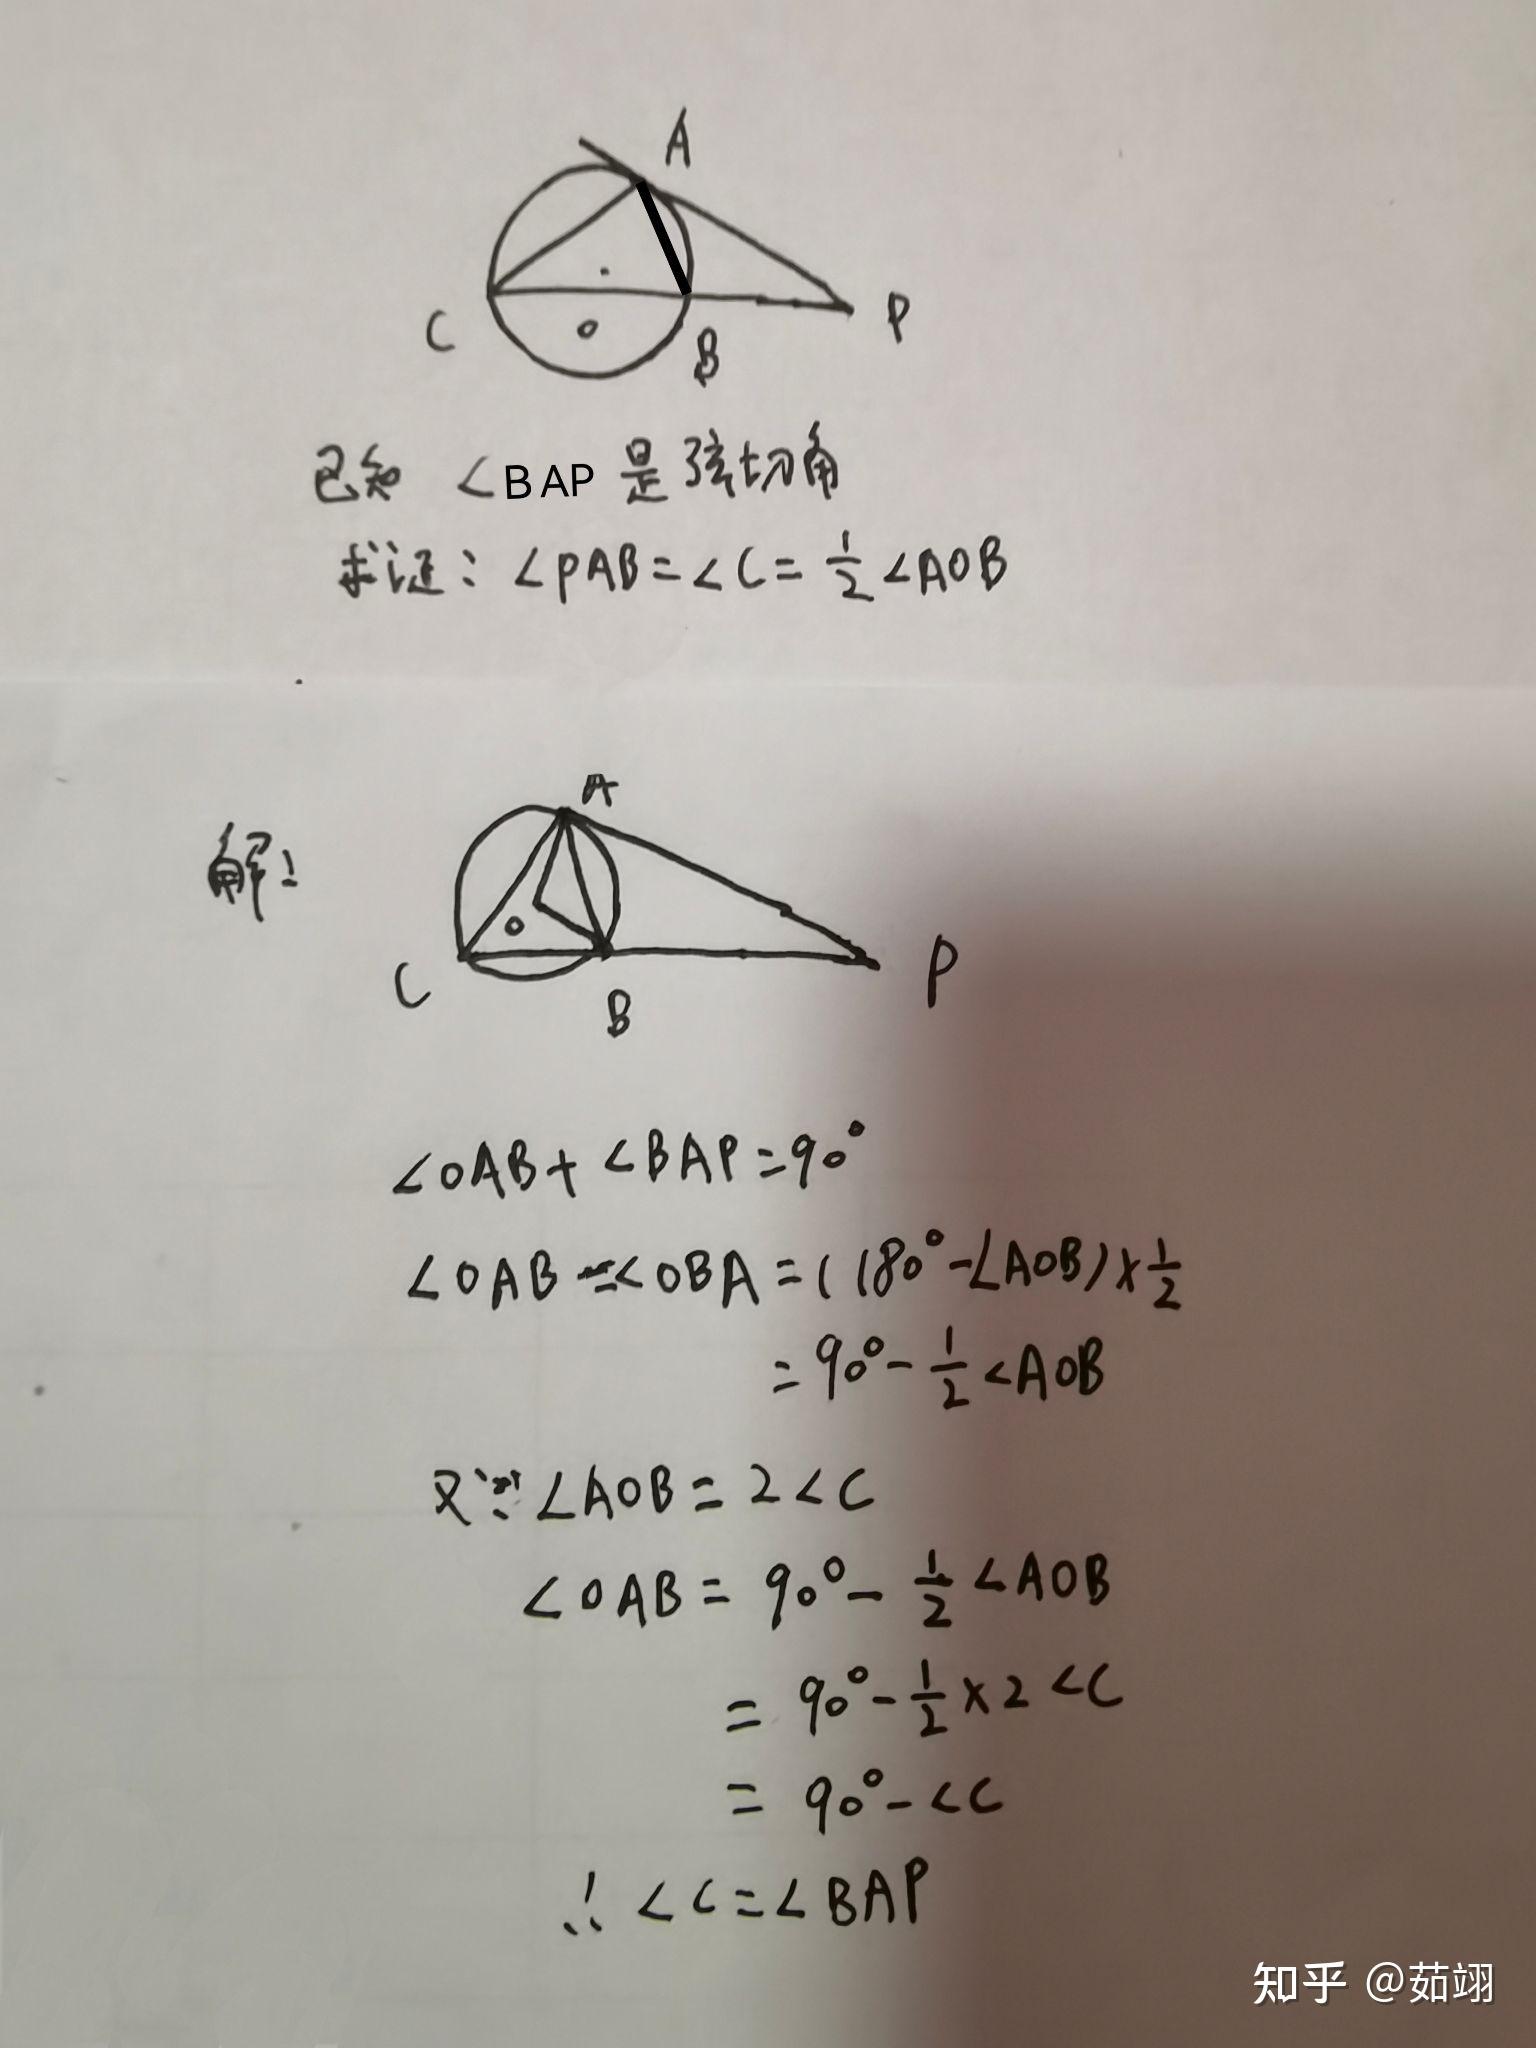 A
C
O
B
P
已知 ∠BAP 是弦切角
求证: ∠PAB=∠C=½∠AOB
解:
A
O
C
B
P
∠OAB+∠BAP=90°
∠OAB=∠OBA=(180°-∠AOB)×½
=90°-½∠AOB
又∵∠AOB=2∠C
∠OAB=90°-½∠AOB
=90°-½×2∠C
=90°-∠C
∴∠C=∠BAP
知乎 @茹翊